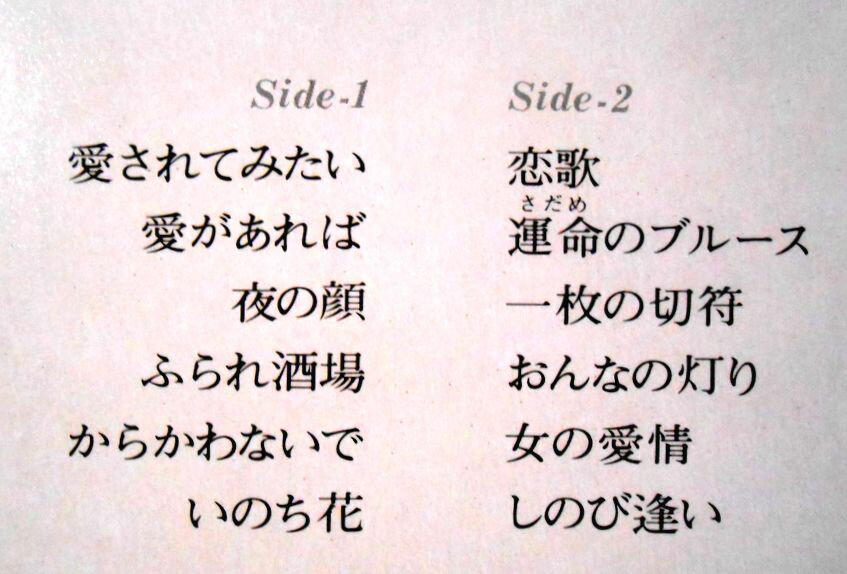 Side-1
愛されてみたい
愛があれば
夜の顔
ふられ酒場
からかわないで
いのち花
Side-2
恋歌
さだめ
運命のブルース
一枚の切符
おんなの灯り
女の愛情
しのび逢い